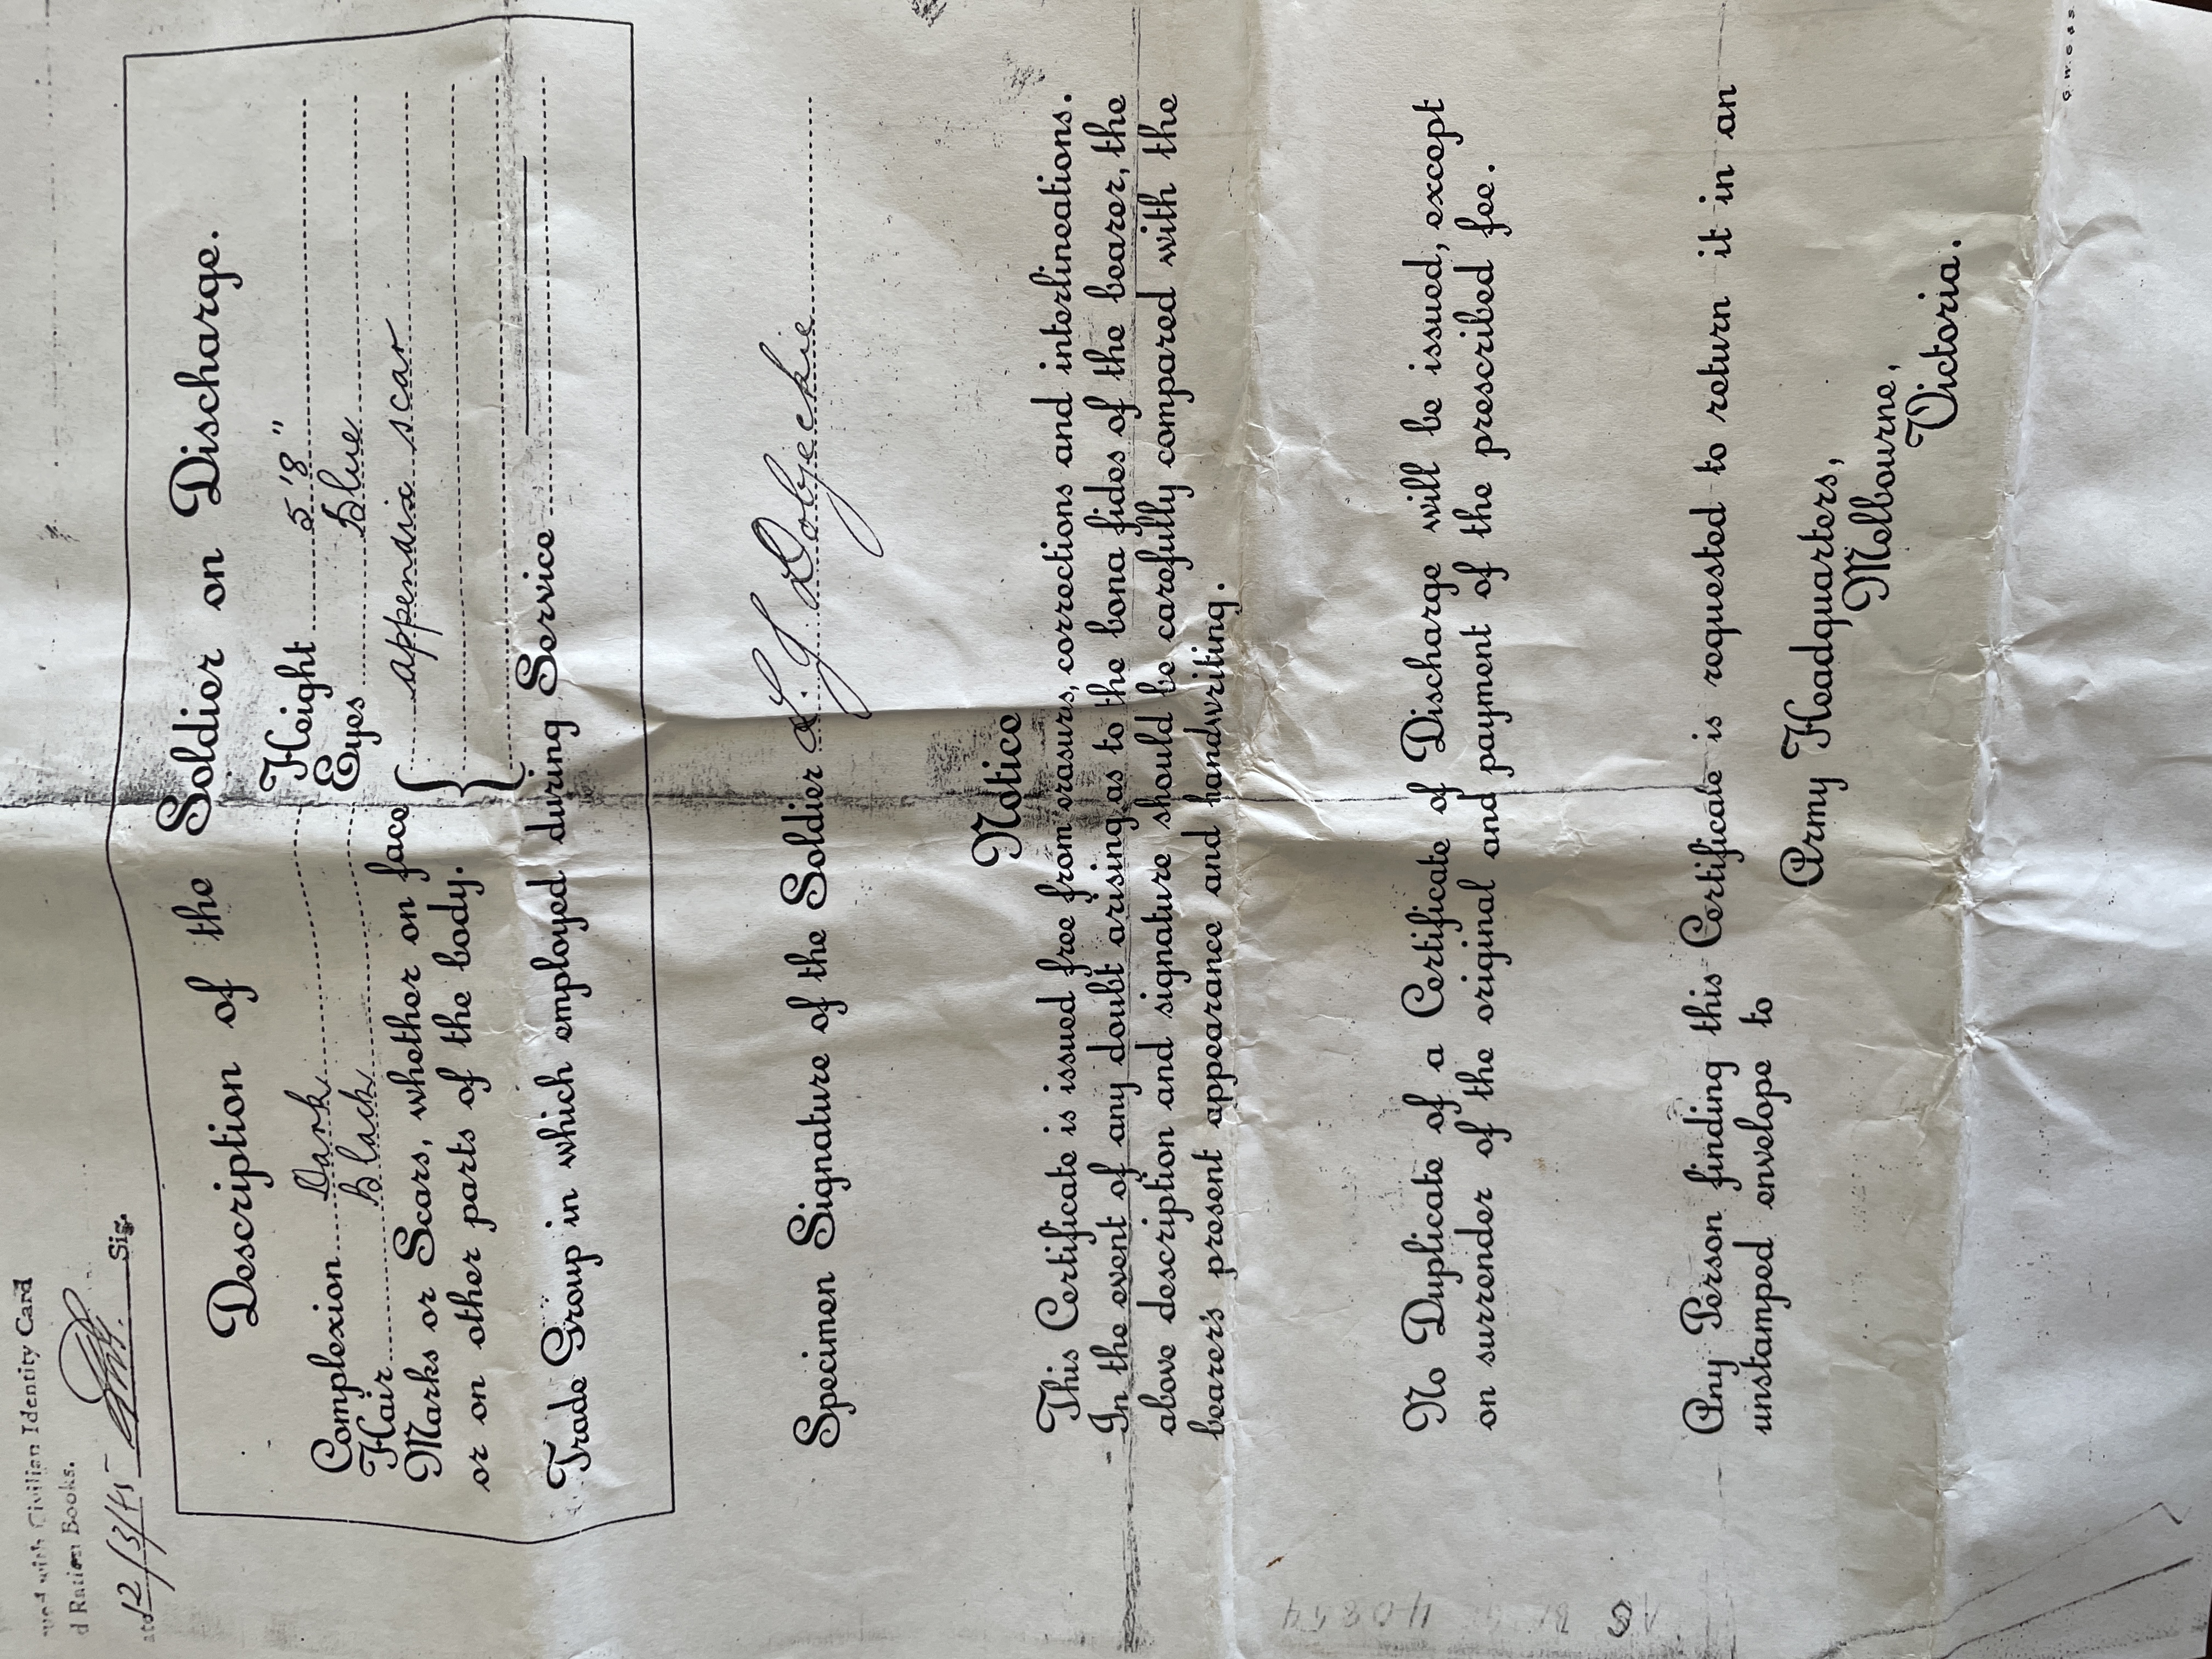 with Civilian Identity Card
d Ration Books.
12/3/45 Sig.
Description of the Soldier on Discharge.
Complexion Dark Height 5'8"
Hair Black Eyes Blue
Marks or Scars, whether on face { appendix scar
or on other parts of the body.
Trade Group in which employed during Service
Specimen Signature of the Soldier
Notice
This Certificate is issued free from erasures, corrections and interlineations.
In the event of any doubt arising as to the bona fides of the bearer, the
above description and signature should be carefully compared with the
bearer's present appearance and handwriting.
No Duplicate of a Certificate of Discharge will be issued, except
on surrender of the original and payment of the prescribed fee.
Any Person finding this Certificate is requested to return it in an
unstamped envelope to
Army Headquarters,
Melbourne,
Victoria.